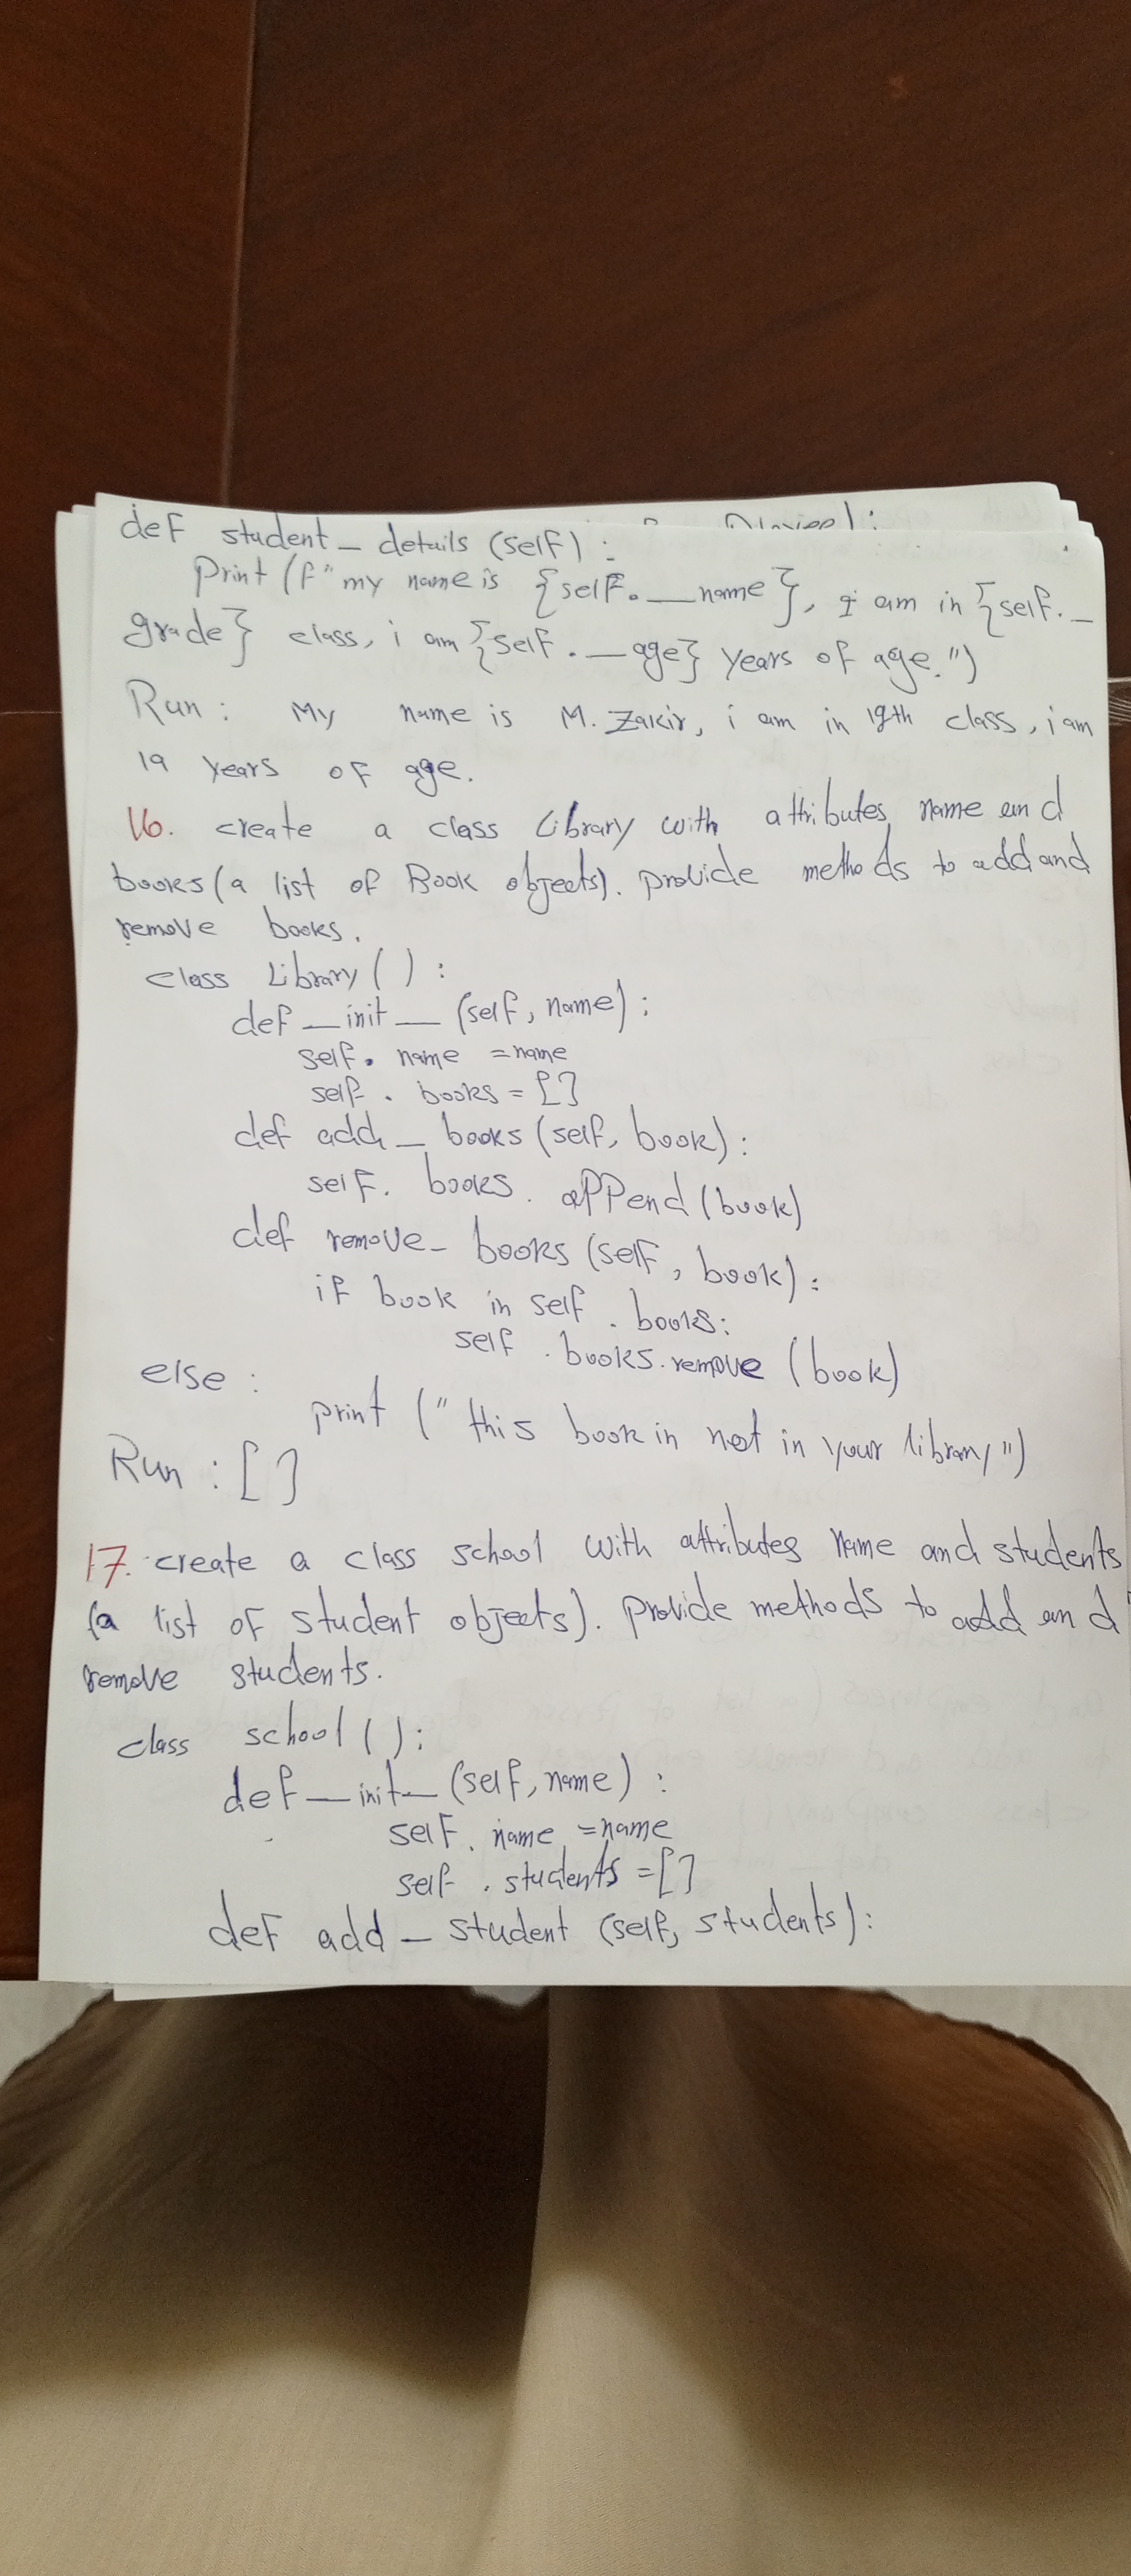 def student_details (self) :
print (f" my name is {self.__name}, i am in {self._
grade} class, i am {self.__age} years of age.")
Run: My name is M. Zakir, i am in class, i am
19 years of age.
16. create a class Library with attributes name and
books (a list of Book objects). provide methods to add and
remove books.
class Library ( ) :
def __init__ (self, name) :
self. name = name
self . books = [ ]
def add _ books (self, book) :
self. books. append (book)
def remove_ books (self, book) :
if book in self . books:
self . books. remove (book)
else :
print (" this book in not in your library")
Run : [ ]
17. create a class school with attributes name and students
(a list of student objects). provide methods to add and
remove students.
class school ( ) :
def __init__ (self, name) :
self. name = name
self . students = [ ]
def add _ student (self, students) :